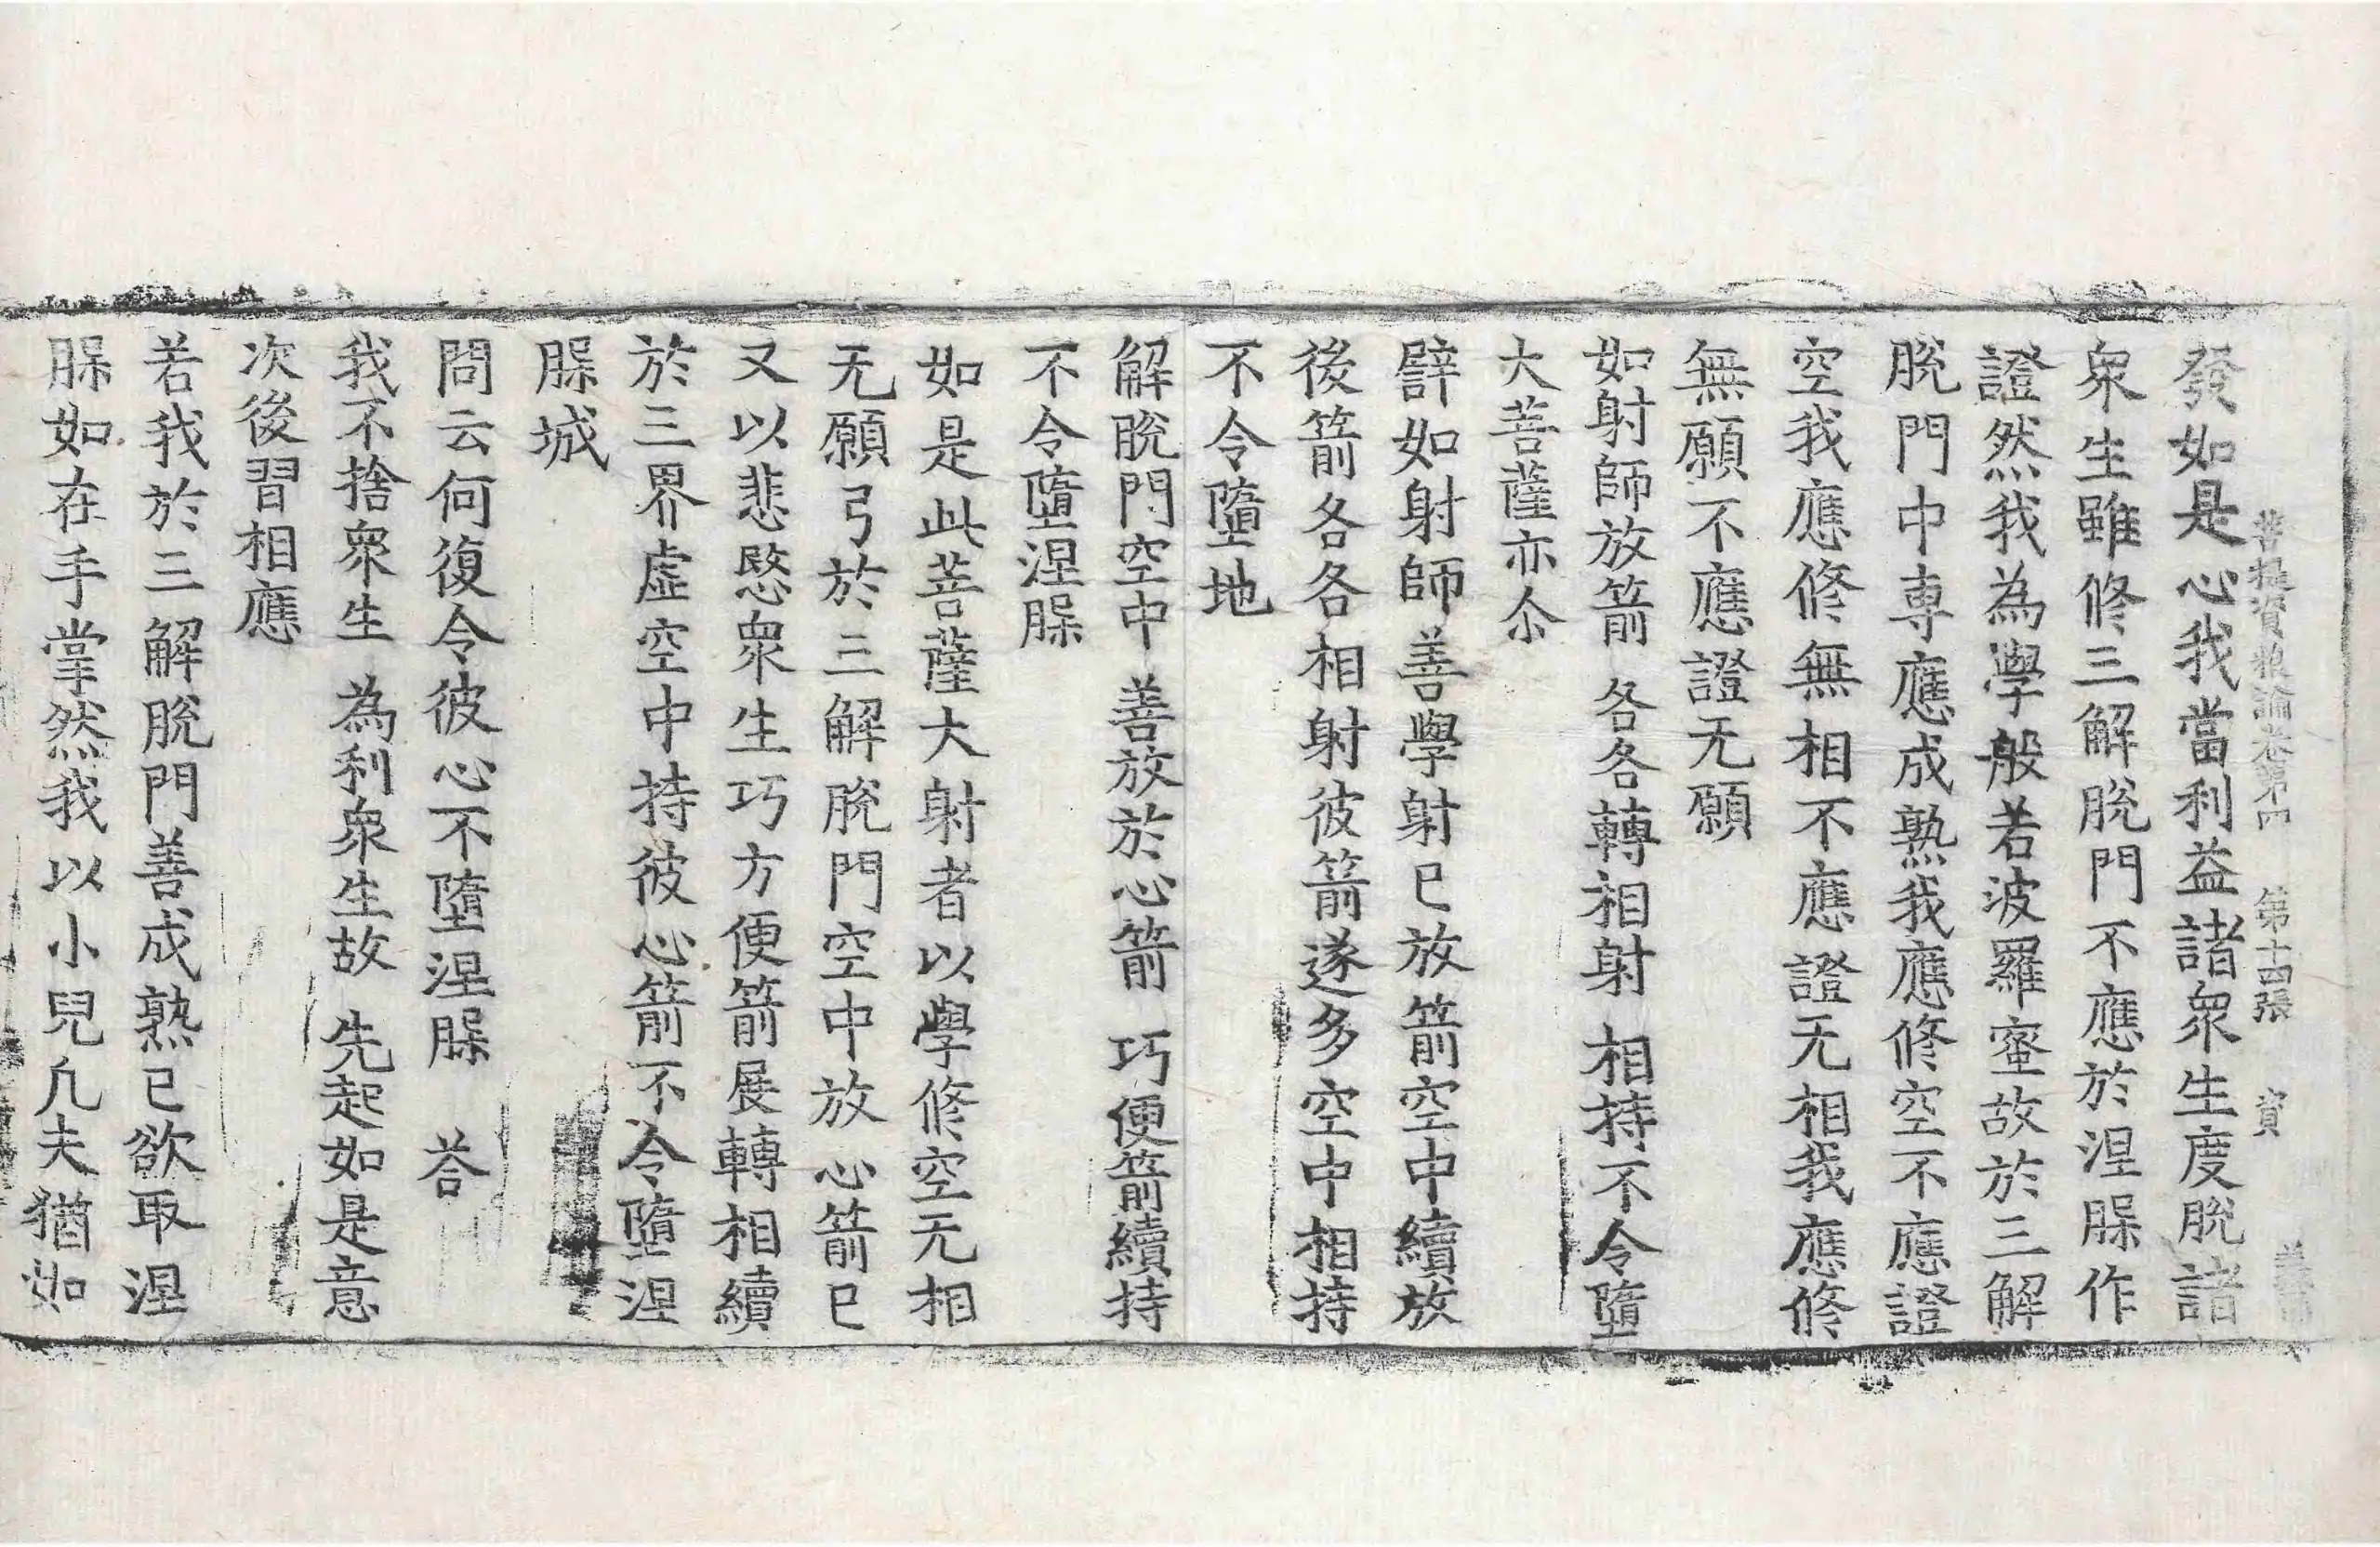 菩提資粮論卷第四　第十四張　資
發如是心我當利益諸衆生度脫諸
衆生雖修三解脫門不應於涅槃作
證然我為學般若波羅蜜故於三解
脫門中專應成熟我應修空不應證
空我應修無相不應證无相我應修
無願不應證无願
如射師放箭　各各轉相射　相持不令墮
大菩薩亦尒
譬如射師善學射已放箭空中續放
後箭各各相射彼箭遂多空中相持
不令墮地
解脫門空中　善放於心箭　巧便箭續持
不令墮涅槃
如是此菩薩大射者以學修空无相
无願弓於三解脫門空中放心箭已
又以悲愍衆生巧方便箭展轉相續
於三界虛空中持彼心箭不令墮涅
槃城
問云何復令彼心不墮涅槃　荅
我不捨衆生　為利衆生故　先起如是意
次後習相應
若我於三解脫門善成熟已欲取涅
槃如在手掌然我以小兒凡夫猶如